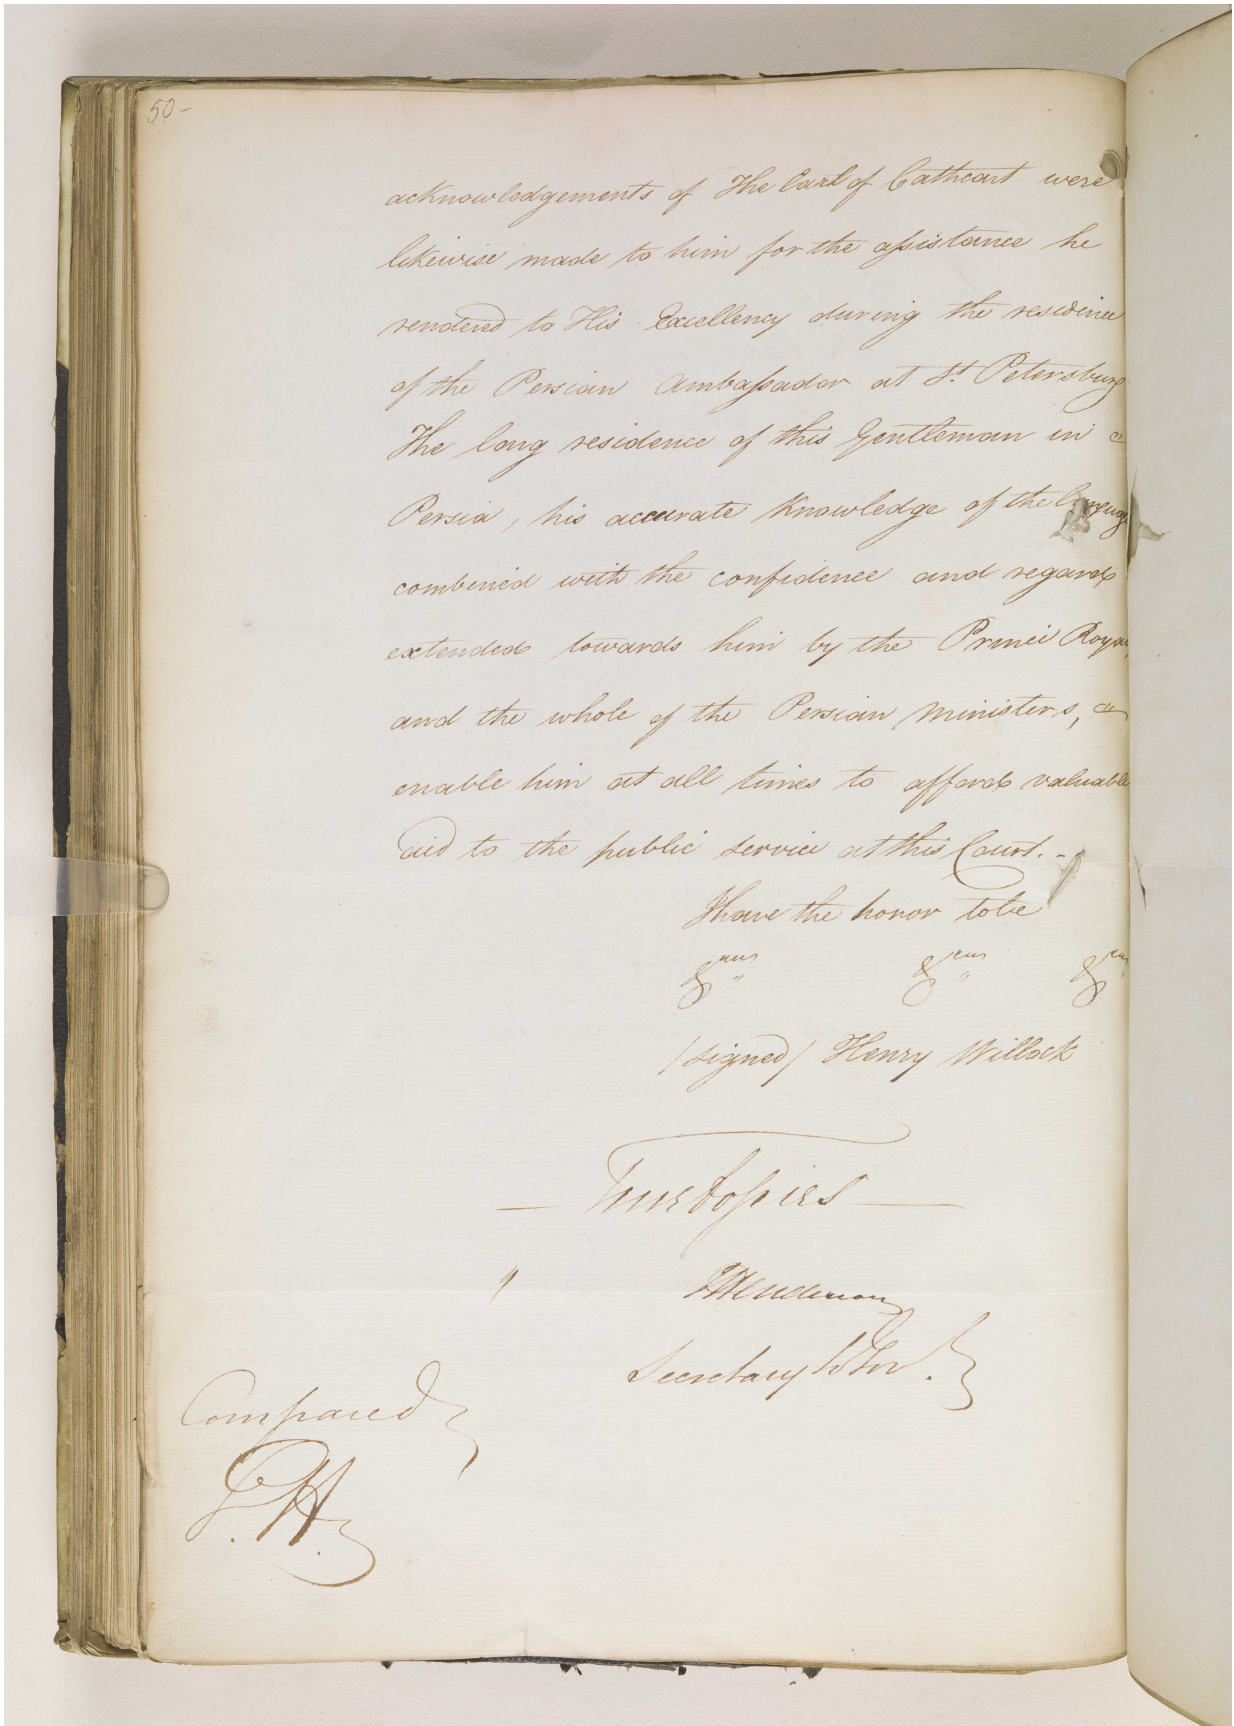 50-
acknowledgements of The Earl of Cathcart were
likewise made to him for the assistance he
rendered to His Excellency during the residence
of the Persian Ambassador at St. Petersburg
The long residence of this Gentleman in
Persia, his accurate Knowledge of the
combined with the confidence and regard
extended towards him by the Prince Royal,
and the whole of the Persian Ministers,
enable him at all times to afford valuable
aid to the public service at this Court. -
I have the honor to be
&ca &ca &ca
/signed/ Henry Willock
— True Copies —
Secretary to Gov.
Compared